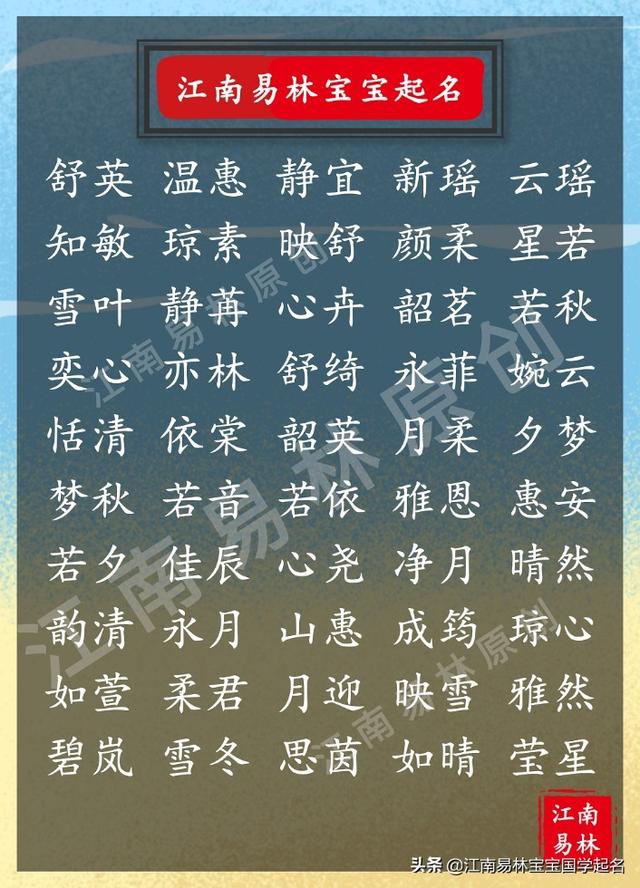 江南易林宝宝起名
舒英 温惠 静宜 新瑶 云瑶
知敏 琼素 映舒 颜柔 星若
雪叶 静苒 心卉 韶茗 若秋
奕心 亦林 舒绮 永菲 婉云
恬清 依棠 韶英 月柔 夕梦
梦秋 若音 若依 雅恩 惠安
若夕 佳辰 心尧 净月 晴然
韵清 永月 山惠 成筠 琼心
如萱 柔君 月迎 映雪 雅然
碧岚 雪冬 思茵 如晴 莹星
江南易林原创
江南易林原创
江南易林原创
江南
易林
头条 @江南易林宝宝国学起名